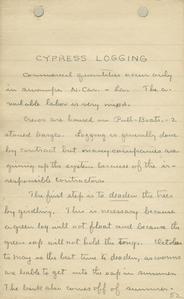 CYPRESS LOGGING
Commercial quantities occur only
in swamps N. Car. - La. The a-
vailable labor is very mixed.
Crews are housed in Pull-Boats - 2
storied barges. Logging is generally done
by contract but many companies are
giving up the system because of the ir-
responsible contractors.
The first step is to deaden the trees
by girdling. This is necessary because
a green log will not float and because the
green sap will not hold the tong. October
to may is the best time to deaden, as worms
are liable to get into the sap in summer.
The bark also comes off of summer-